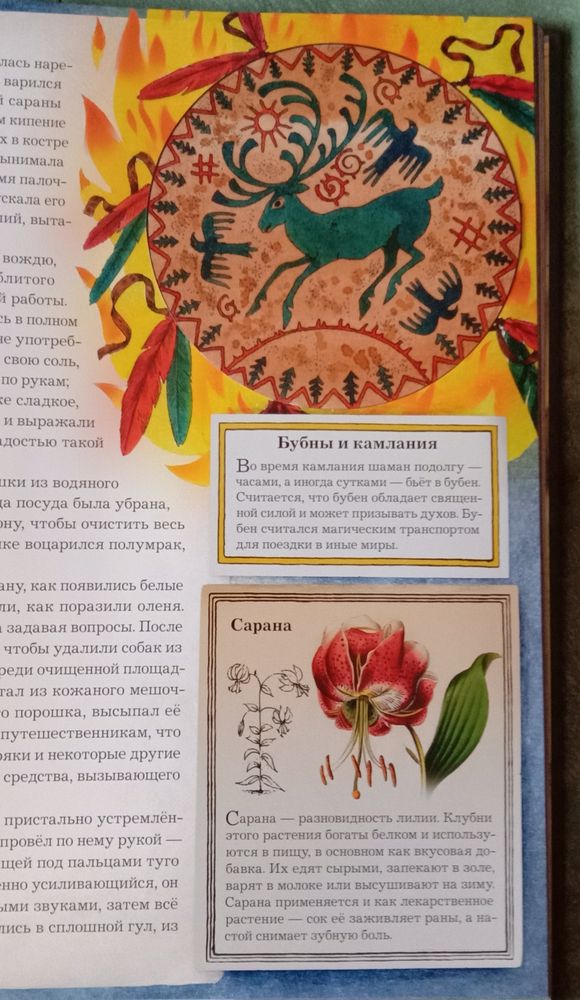 лась наре-
варился
й сараны
м кипение
х в костре
ынимала
мя палоч-
ускала его
ший, выта-
вождю,
блитого
й работы.
сь в полном
не употреб-
свою соль,
по рукам;
же сладкое,
и выражали
адостью такой
шки из водяного
да посуда была убрана,
ону, чтобы очистить весь
ике воцарился полумрак,
ану, как появились белые
ли, как поразили оленя.
а задавая вопросы. После
чтобы удалили собак из
реди очищенной площад-
тал из кожаного мешоч-
го порошка, высыпал её
путешественникам, что
ряки и некоторые другие
средства, вызывающего
пристально устремлён-
провёл по нему рукой —
щей под пальцами туго
енно усиливающийся, он
ыми звуками, затем всё
лись в сплошной гул, из
Бубны и камлания
Во время камлания шаман подолгу —
часами, а иногда сутками — бьёт в бубен.
Считается, что бубен обладает священ-
ной силой и может призывать духов. Бу-
бен считался магическим транспортом
для поездки в иные миры.
Сарана
Сарана — разновидность лилии. Клубни
этого растения богаты белком и использу-
ются в пищу, в основном как вкусовая до-
бавка. Их едят сырыми, запекают в золе,
варят в молоке или высушивают на зиму.
Сарана применяется и как лекарственное
растение — сок её заживляет раны, а на-
стой снимает зубную боль.